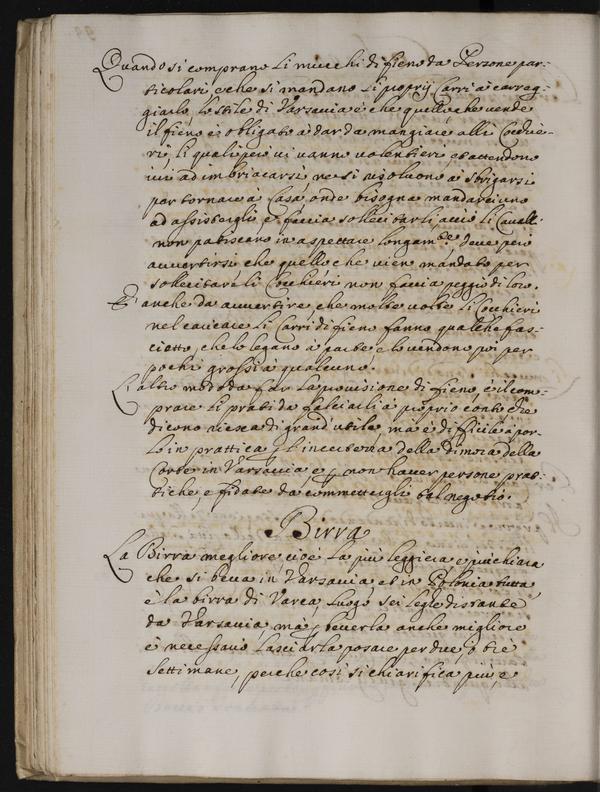 Quando si comprano li mucchi di fieno da Persone par-
ticolari, e che si mandano li proprij Carri à carreg-
giarlo, lo stile di Varsavia è che quello che vende
il fieno è obligato à dar da mangiare alli Cocchie-
ri, li quali però vi vanno volentieri, et attendono
ivi ad imbriacarsi, ne si risoluono à sbrigarsi
per tornare à Casa, onde bisogna mandarci uno
ad assisterli, e faccia sollecitarli, acciò li Cavalli
non patiscano in aspettare longam.te Deve però
avvertirsi che quello che vien mandato per
sollecitare li Cocchieri non faccia peggio di loro.
E' anche da avvertire, che molte volte li Cocchieri
nel caricare li Carri di fieno fanno qualche fas-
cietto, che lo legano à parte e lo vendono poi per
pochi grossi à qualcuno.
L'altro modo da far la provisione di fieno, è il com-
prare li prati da falciarli à proprio conto, che
dicono riesca di grand'utile, ma è difficile à por-
lo in prattica p l'incertezza della dimora della
Corte in Varsavia e p non haver persone prat-
tiche, e fidate da commettergli tal negotio.
Birra
La Birra megliore cioè la più leggiera e più chiara
che si beva in Varsavia et in Polonia tutta,
è la birra di Varca, luogo sei leghe distante
da Varsavia, mà p beverla anche migliore
è necessario lasciarla posare per due, ò tre
settimane, perche così si chiarifica più e